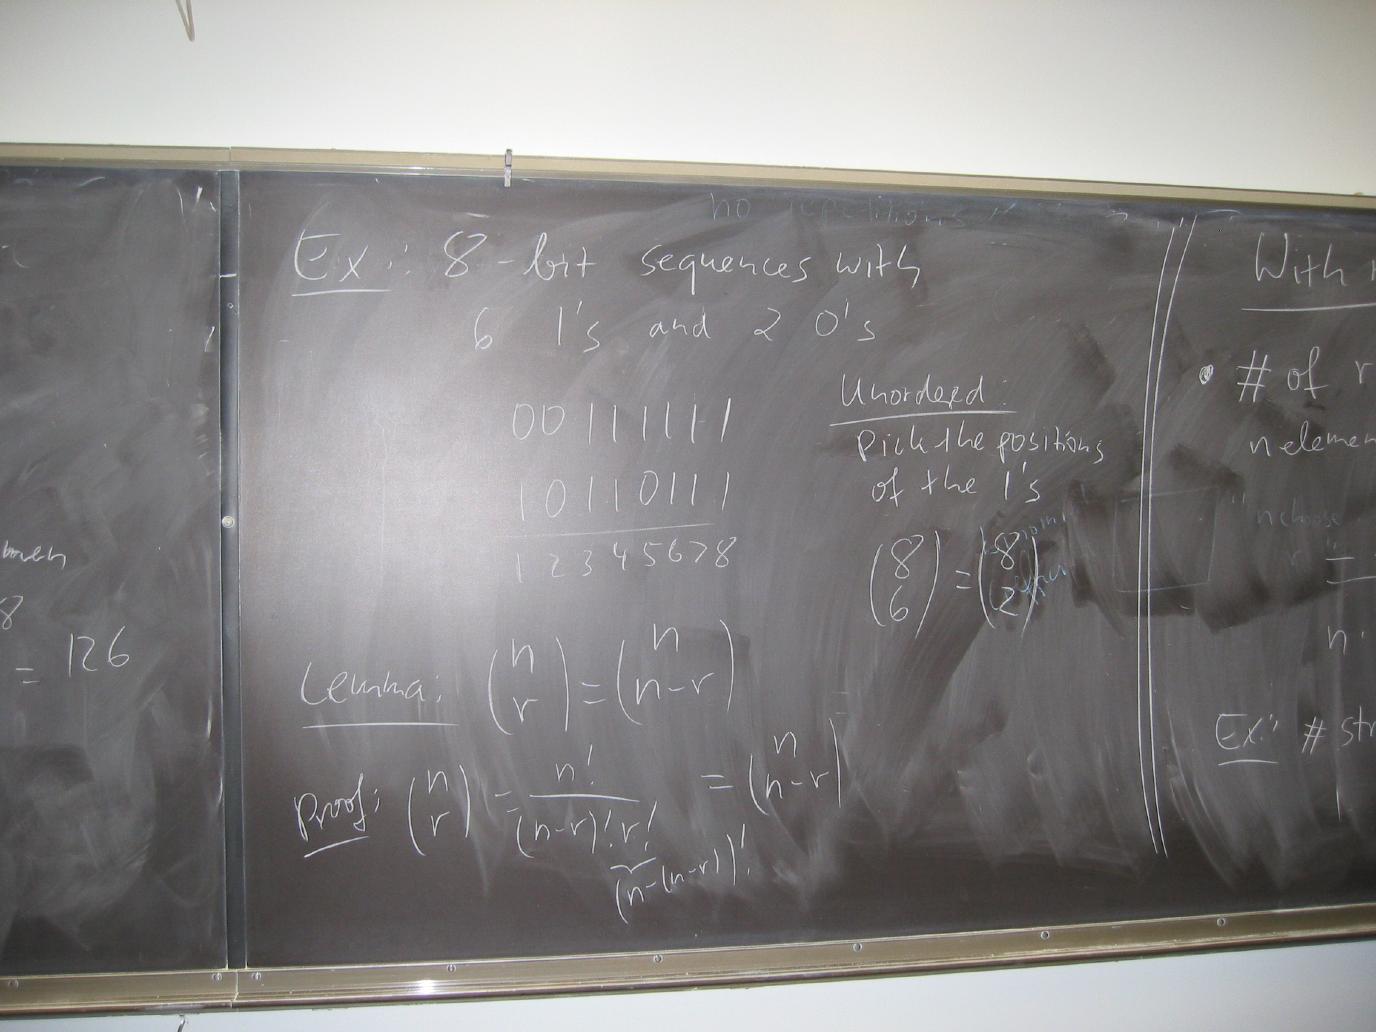 = 126
no repetitions
Ex.: 8-bit sequences with
6 1's and 2 0's
00111111
10110111
12345678
Unordered:
Pick the positions
of the 1's
(8 6) = (8 2)
Lemma: (n r) = (n n-r)
Proof: (n r) = n! / (n-r)! r! = (n n-r)
(n-(n-r))!
With
# of r
n elemen
"n choose
r"
n.
Ex.: # str